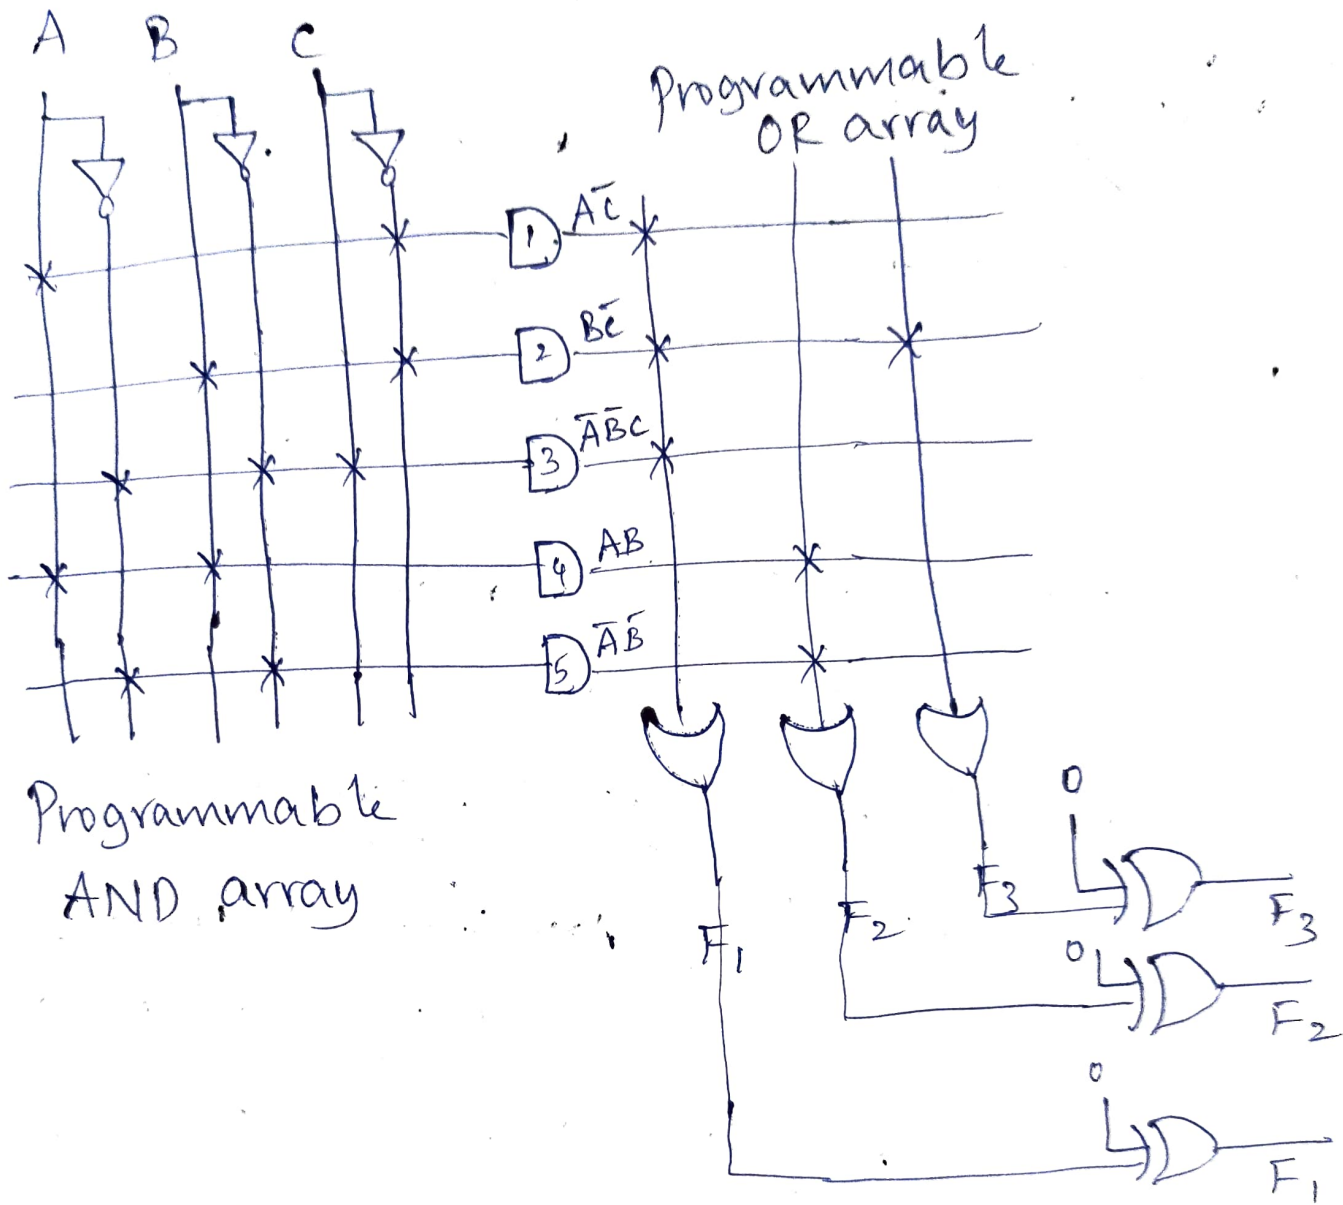 A B C
Programmable
OR array
1 AC̅
2 BC̅
3 A̅B̅C
4 AB
5 A̅B̅
Programmable
AND array
0
F3 F3
F2 0 F2
F1
0
F1